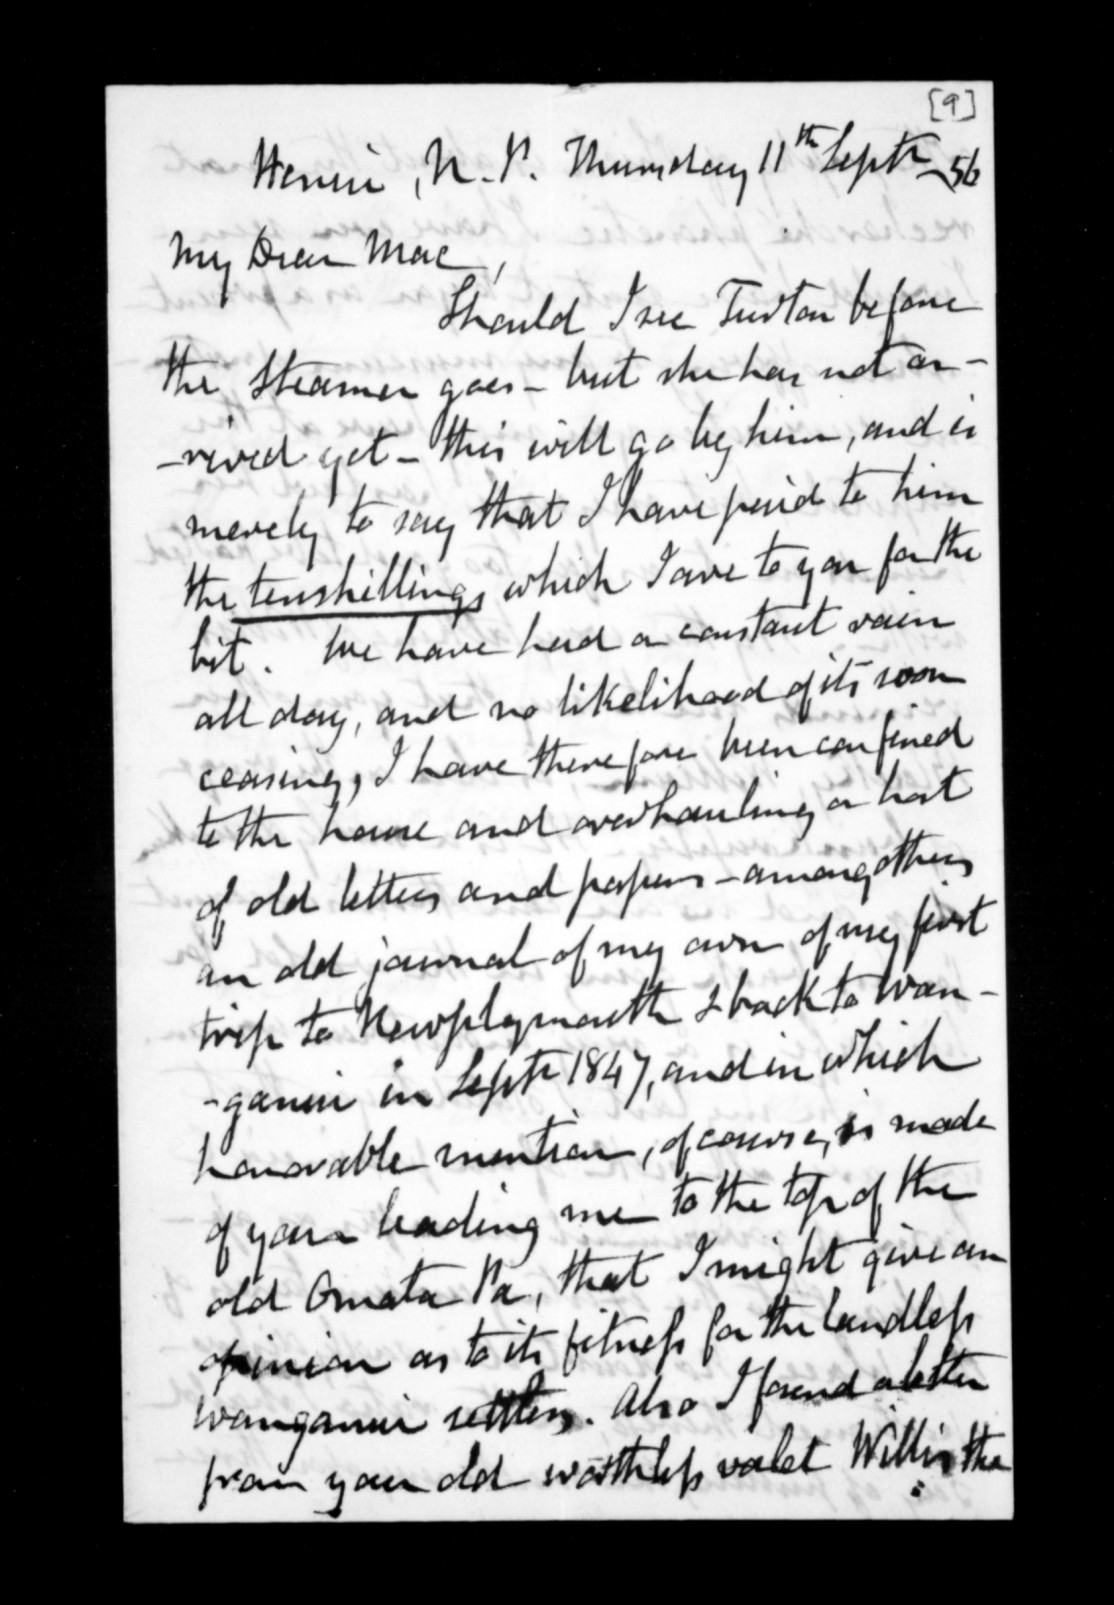 [9]
Henui, N.P. Thursday 11th Septr 56
My Dear Mac,
Should I see Turton before
the Steamer goes - but she has not ar-
-rived yet - this will go by him, and is
merely to say that I have paid to him
the ten shillings which I owe to you for the
bit. We have had a constant rain
all day, and no likelihood of its soon
ceasing, I have therefore been confined
to the house and overhauling a host
of old letters and papers - among others
an old journal of my own of my first
trip to Newplymouth & back to Wan-
-ganui in Septr 1847, and in which
honorable mention, of course, is made
of your leading me to the top of the
old Omata Pa, that I might give an
opinion as to its fitness for the landless
Wanganui settlers. Also I found a letter
from your old worthless valet Willis the